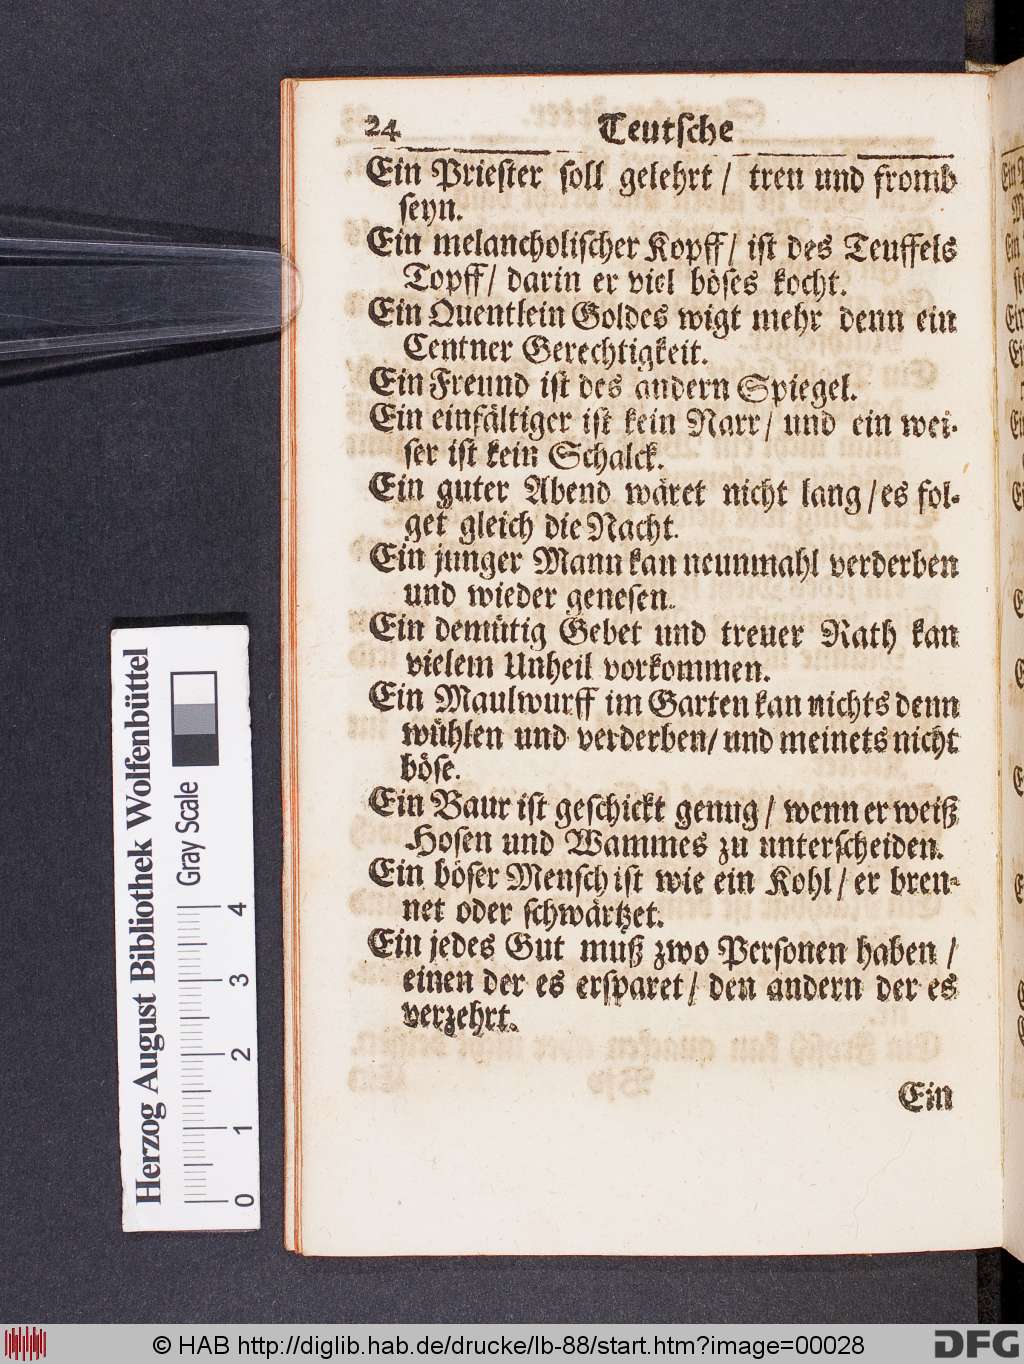 24 Teutsche
Ein Priester soll gelehrt / treu und fromb
seyn.
Ein melancholischer Kopff / ist des Teuffels
Topff / darin er viel böses kocht.
Ein Quentlein Goldes wigt mehr denn ein
Centner Gerechtigkeit.
Ein Freund ist des andern Spiegel.
Ein einfältiger ist kein Narr / und ein wei-
ser ist kein Schalck.
Ein guter Abend wäret nicht lang / es fol-
get gleich die Nacht.
Ein junger Mann kan neunmahl verderben
und wieder genesen.
Ein demütig Gebet und treuer Rath kan
vielem Unheil vorkommen.
Ein Maulwurff im Garten kan nichts denn
wühlen und verderben / und meinets nicht
böse.
Ein Baur ist geschickt genug / wenn er weiß
Hosen und Wammes zu unterscheiden.
Ein böser Mensch ist wie ein Kohl / er bren-
net oder schwärtzet.
Ein jedes Gut muß zwo Personen haben /
einen der es ersparet / den andern der es
verzehrt.
Ein
Herzog August Bibliothek Wolfenbüttel
Gray Scale
0 1 2 3 4
© HAB http://diglib.hab.de/drucke/lb-88/start.htm?image=00028
DFG